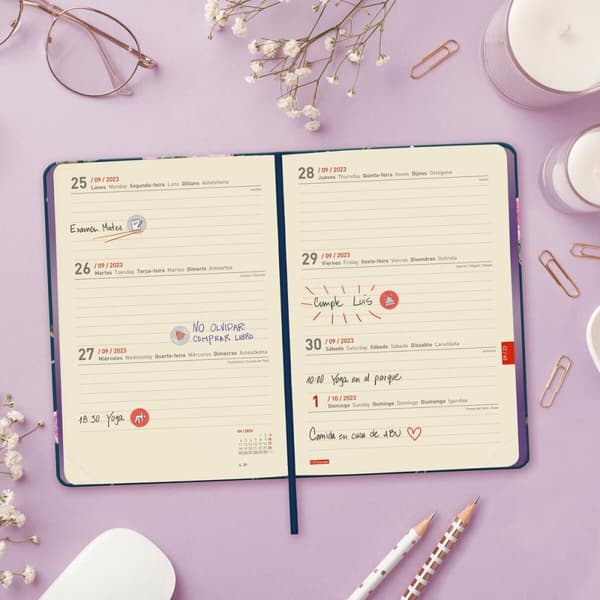 25 / 09 / 2023
Lunes Monday Segunda-feira Luns Dilluns Astelehena
Examen Mates
26 / 09 / 2023
Martes Tuesday Terça-feira Martes Dimarts Asteartea
NO OLVIDAR
COMPRAR LIBRO
27 / 09 / 2023
Miércoles Wednesday Quarta-feira Mércores Dimecres Asteazkena
18:30 Yoga
28 / 09 / 2023
Jueves Thursday Quinta-feira Xoves Dijous Osteguna
29 / 09 / 2023
Viernes Friday Sexta-feira Venres Divendres Ostirala
Cumple Luis
30 / 09 / 2023
Sábado Saturday Sábado Sábado Dissabte Larunbata
10:00 Yoga en el parque
1 / 10 / 2023
Domingo Sunday Domingo Domingo Diumenge Igandea
Comida en casa de ABU